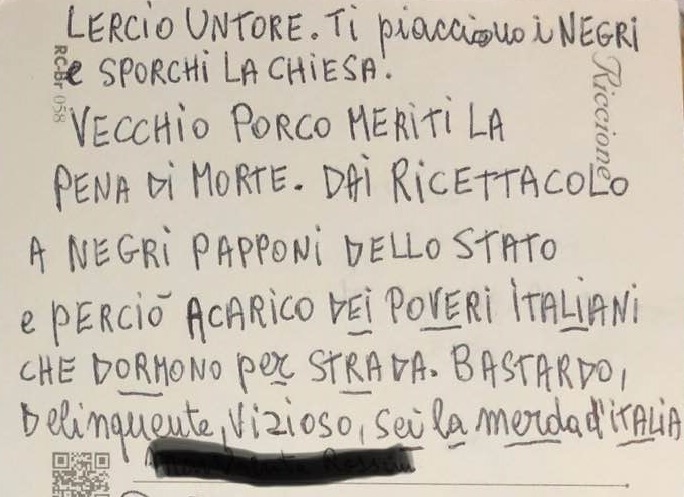 LERCIO UNTORE. Ti piacciono i NEGRi
e SPORCHi LA CHIESA!
VECCHIO PORCO MERITI LA
PENA Di MORTE. DAi RiCETTACOLO
A NEGRi PAPPONi DELLO STATO
e PERCIÒ ACARICO DEi POVERi iTALiANi
CHE DORMONO per STRADA. BASTARDO,
Delinquente, Vizioso, sei la merda d'iTALIA
RC-Br 058
Riccione